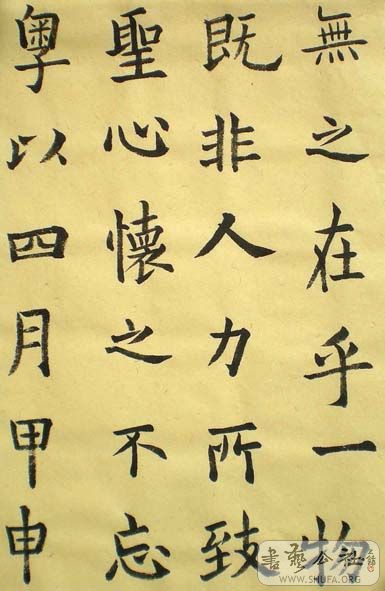 無之在乎一物
既非人力所致
聖心懷之不忘
粤以四月甲申
書藝公社
WWW.SHUFA.ORG